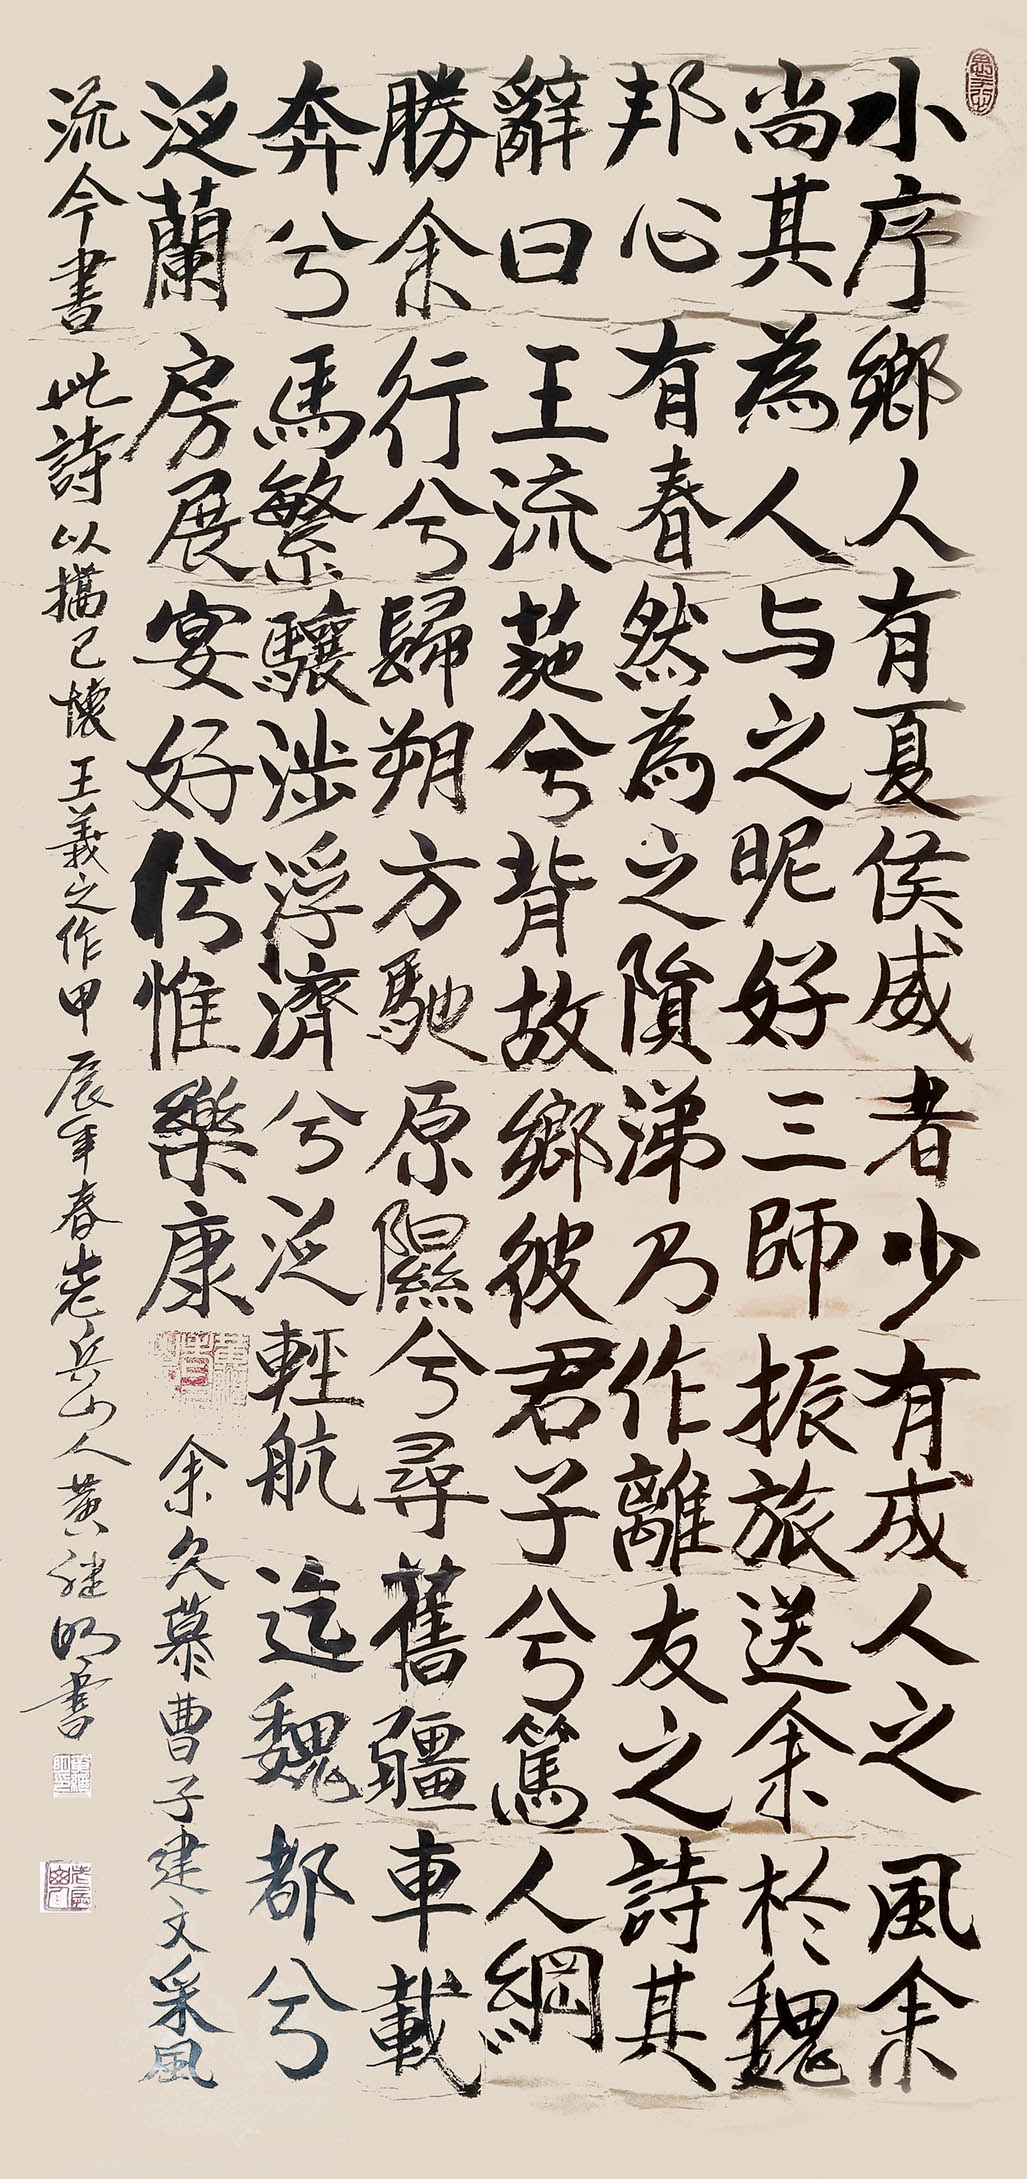 小序鄉人有夏侯威者少有成人之風余
尚其為人与之昵好三師振旅送余於魏
邦心有春然為之隕涕乃作離友之詩其
辭曰王流菀兮背故鄉彼君子兮篤人綱
勝余行兮歸朔方馳原隰兮尋舊疆車載
奔兮馬繁驤涉浮濟兮泛輕航迄魏都兮
泛蘭房展宴好兮惟樂康
余久慕曹子建文采風
流今書此詩以攄己懷王義之作甲辰年春老兵山人黄继明書